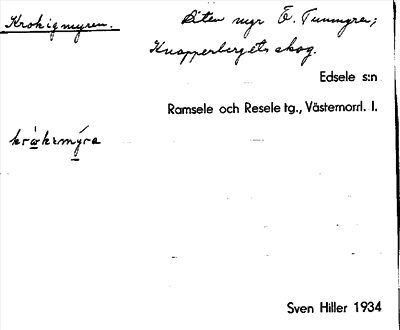 Krokigmyren.
Liten myr Ö. Tunnmyren;
Knapperbergets skog.
Edsele s:n
Ramsele och Resele tg., Västernorrl. l.
Sven Hiller 1934